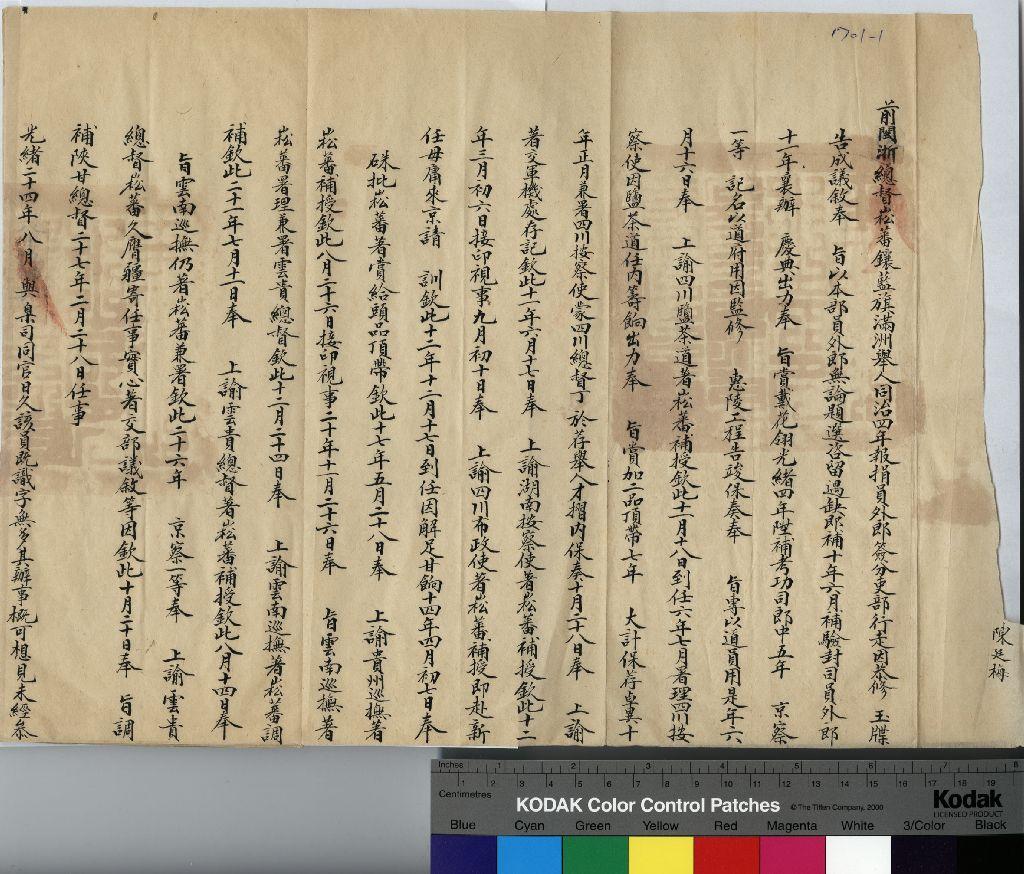 1701-1
陳廷梅
前閩浙總督崧蕃鑲藍旗滿洲舉人同治四年報捐員外郎簽分吏部行走因恭修 玉牒
告成議敘奉 旨以本部員外郎無論題選咨留過缺即補十年六月補驗封司員外郎
十一年襄辦 慶典出力奉 旨賞戴花翎光緒四年陞補考功司郎中五年 京察
一等 記名以道府用因監修 惠陵工程告竣保奏奉 旨專以道員用是年六
月十六日奉 上諭四川鹽茶道著崧蕃補授欽此十一月十八日到任六年七月署理四川按
察使因鹽茶道任內籌餉出力奉 旨賞加二品頂帶七年 大計保荐卓異十
年正月兼署四川按察使蒙四川總督丁 於荐舉人才摺內保奏十月二十八日奉 上諭
著交軍機處存記欽此十一年六月十七日奉 上諭湖南按察使著崧蕃補授欽此十二
年三月初六日接印視事九月初十日奉 上諭四川布政使著崧蕃補授即赴新
任毋庸來京請 訓欽此十二年十二月十七日到任因解足甘餉十四年四月初七日奉
硃批崧蕃著賞給頭品頂帶欽此十七年五月二十八日奉 上諭貴州巡撫著
崧蕃補授欽此八月二十六日接印視事二十年十一月二十六日奉 旨雲南巡撫著
崧蕃署理兼署雲貴總督欽此十二月二十四日奉 上諭雲南巡撫著崧蕃調
補欽此二十一年七月十一日奉 上諭雲貴總督著崧蕃補授欽此八月十四日奉
旨雲南巡撫仍著崧蕃兼署欽此二十六年 京察一等奉 上諭雲貴
總督崧蕃久膺疆寄任事實心著交部議敘等因欽此十月二十日奉 旨調
補陝甘總督二十七年二月二十八日任事
光緒二十四年八月 與臬司同官日久該員既識字無多其辦事概可想見未經參
Inches 1 2 3 4 5 6 7 8
Centimetres 1 2 3 4 5 6 7 8 9 10 11 12 13 14 15 16 17 18 19
KODAK Color Control Patches © The Tiffen Company, 2000 Kodak
LICENSED PRODUCT
Blue Cyan Green Yellow Red Magenta White 3/Color Black